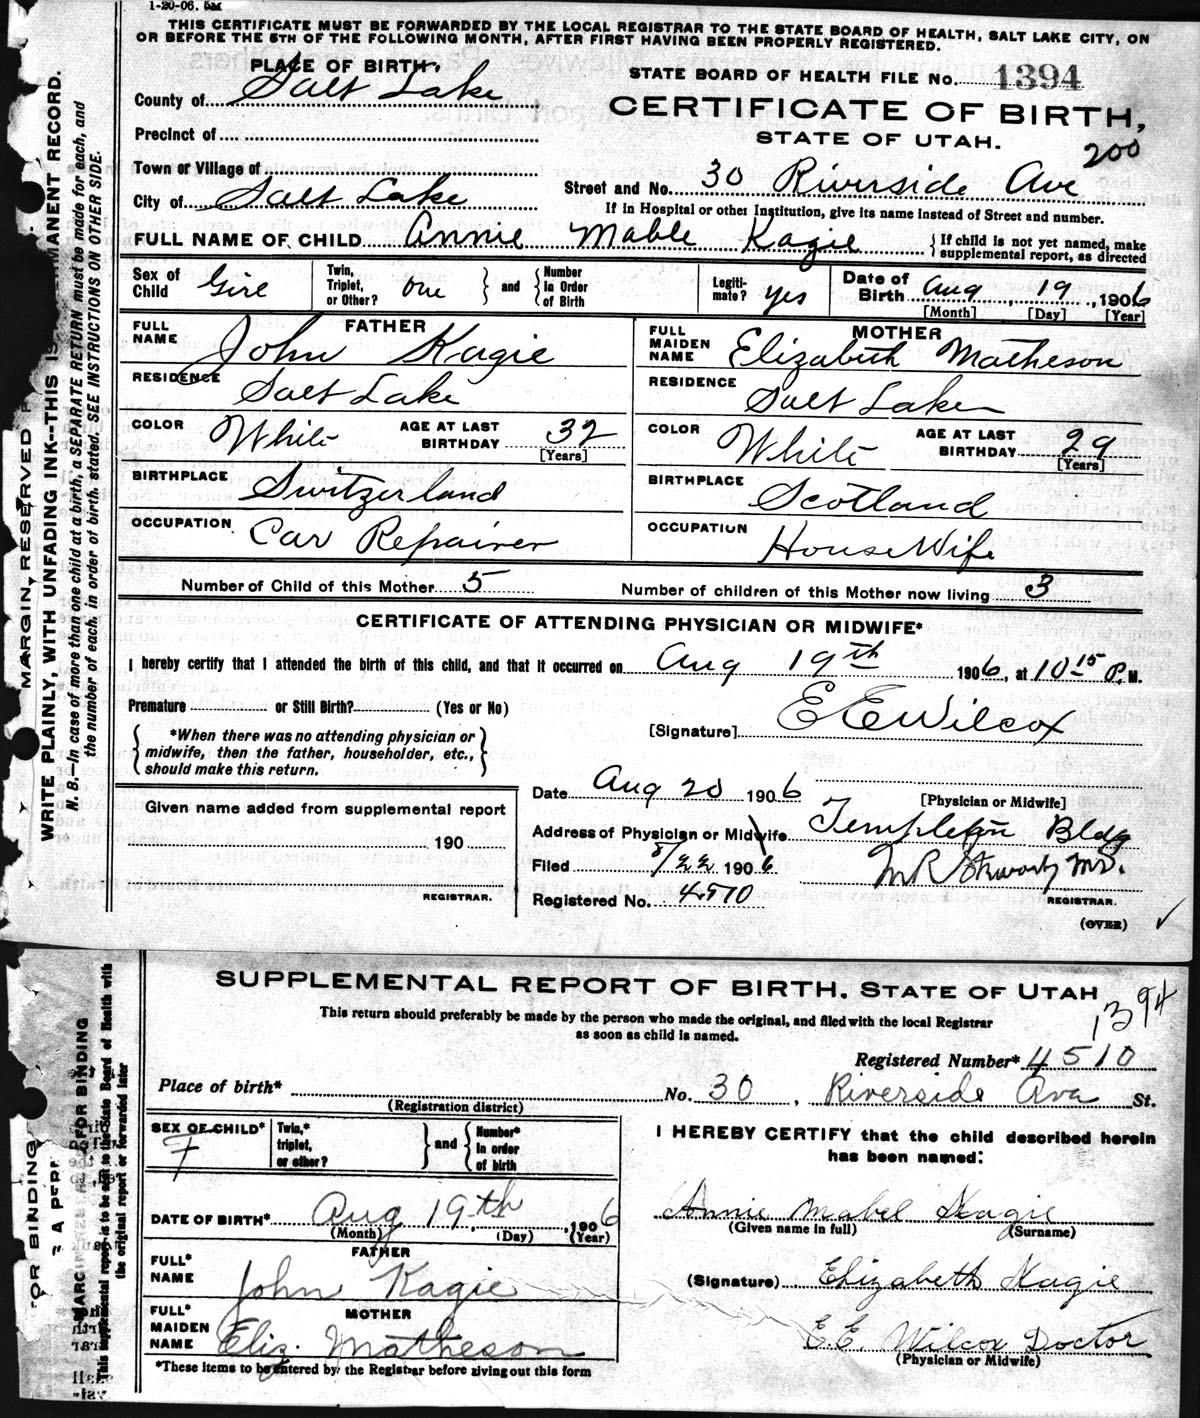 1-20-06. 5M
THIS CERTIFICATE MUST BE FORWARDED BY THE LOCAL REGISTRAR TO THE STATE BOARD OF HEALTH, SALT LAKE CITY, ON
OR BEFORE THE 5TH OF THE FOLLOWING MONTH, AFTER FIRST HAVING BEEN PROPERLY REGISTERED.
PLACE OF BIRTH,
STATE BOARD OF HEALTH FILE No. 1394
County of Salt Lake
CERTIFICATE OF BIRTH,
Precinct of
STATE OF UTAH.
200
Town or Village of
Street and No. 30 Riverside Ave
City of Salt Lake
If in Hospital or other Institution, give its name instead of Street and number.
FULL NAME OF CHILD Annie Mable Kagie
If child is not yet named, make
supplemental report, as directed
Sex of Child Girl Twin, Triplet, or Other? one and Number In Order of Birth Legiti-mate? yes Date of Birth Aug 19, 1906
[Month] [Day] [Year]
FATHER MOTHER
FULL NAME John Kagie FULL MAIDEN NAME Elizabeth Matheson
RESIDENCE Salt Lake RESIDENCE Salt Lake
COLOR White AGE AT LAST BIRTHDAY 32 [Years] COLOR White AGE AT LAST BIRTHDAY 29 [Years]
BIRTHPLACE Switzerland BIRTHPLACE Scotland
OCCUPATION Car Repairer OCCUPATION House Wife
Number of Child of this Mother 5 Number of children of this Mother now living 3
CERTIFICATE OF ATTENDING PHYSICIAN OR MIDWIFE*
I hereby certify that I attended the birth of this child, and that it occurred on Aug 19th 1906, at 10 15 P.M.
Premature or Still Birth? (Yes or No)
[Signature] E E Wilcox
*When there was no attending physician or
midwife, then the father, householder, etc.,
should make this return.
Date Aug 20 1906
[Physician or Midwife]
Given name added from supplemental report
Address of Physician or Midwife Templeton Bldg
190
Filed 8/22 1906
REGISTRAR.
REGISTRAR.
Registered No. 4510
(OVER)
MARGIN RESERVED
WRITE PLAINLY, WITH UNFADING INK--THIS IS PERMANENT RECORD.
N. B.—In case of more than one child at a birth, a SEPARATE RETURN must be made for each, and
the number of each, in order of birth, stated. SEE INSTRUCTIONS ON OTHER SIDE.
SUPPLEMENTAL REPORT OF BIRTH. STATE OF UTAH
This return should preferably be made by the person who made the original, and filed with the local Registrar
as soon as child is named.
1394
Registered Number* 4510
Place of birth* No. 30, Riverside Ava St.
(Registration district)
SEX OF CHILD* F Twin,* triplet, or other? and Number* In order of birth
I HEREBY CERTIFY that the child described herein
has been named:
DATE OF BIRTH* Aug 19th, 1906
(Month) (Day) (Year)
Annie Mabel Kagie
(Given name in full) (Surname)
FATHER
FULL* NAME John Kagie
(Signature) Elizabeth Kagie
MOTHER
FULL* MAIDEN NAME Eliz. Matheson
E.E. Wilcox Doctor
(Physician or Midwife)
*These items to be entered by the Registrar before giving out this form
OR BINDING
FOR BINDING
This supplemental report is to be sent to the State Board of Health with
the original report or forwarded later